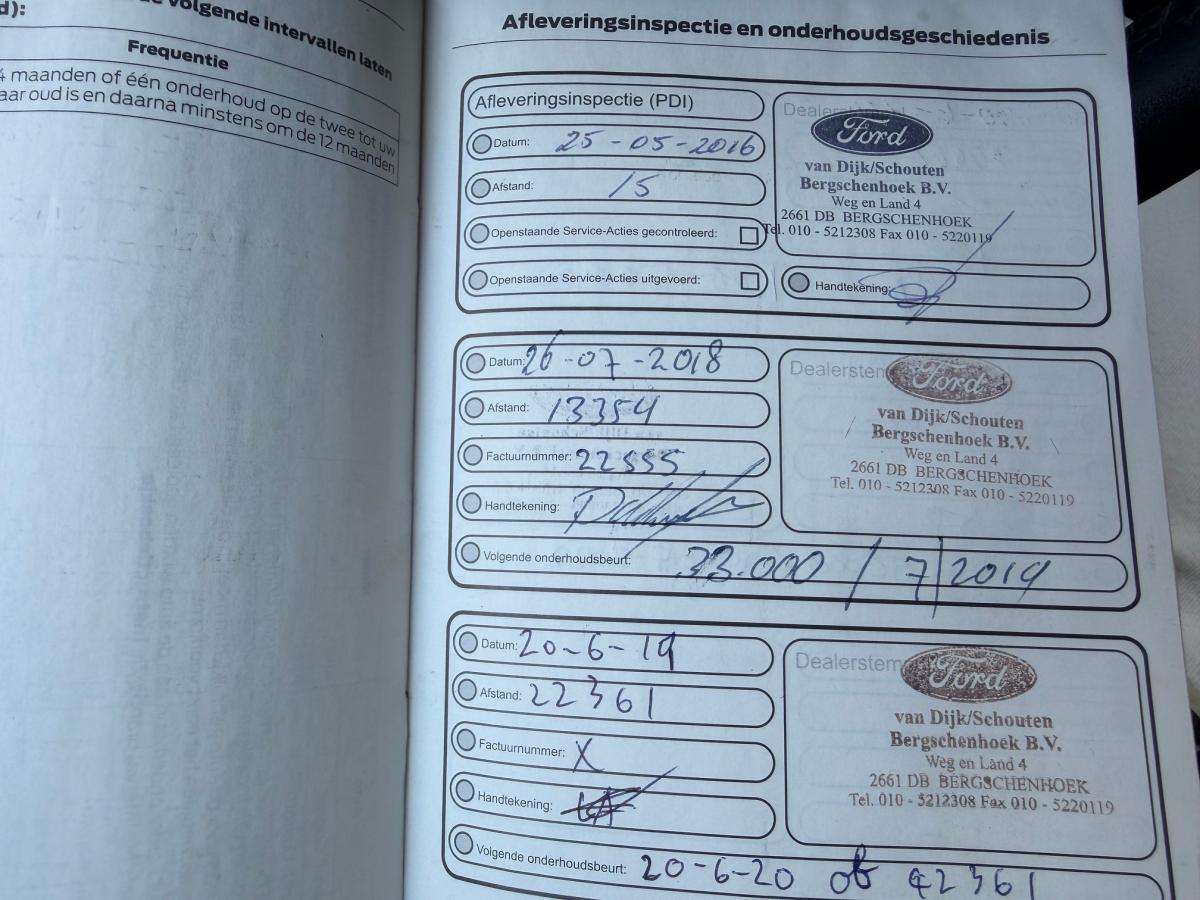 d):
volgende intervallen laten
Frequentie
maanden of één onderhoud op de twee tot uw
aar oud is en daarna minstens om de 12 maanden
Afleveringsinspectie en onderhoudsgeschiedenis
Afleveringsinspectie (PDI)
Datum: 25-05-2016
Afstand: 15
Openstaande Service-Acties gecontroleerd:
Openstaande Service-Acties uitgevoerd:
Ford
van Dijk/Schouten
Bergschenhoek B.V.
Weg en Land 4
2661 DB BERGSCHENHOEK
Tel. 010 - 5212308 Fax 010 - 5220119
Handtekening:
Datum: 26-07-2018
Afstand: 13354
Factuurnummer: 22555
Handtekening:
Volgende onderhoudsbeurt: 33.000 / 7/2019
Dealerstem
Ford
van Dijk/Schouten
Bergschenhoek B.V.
Weg en Land 4
2661 DB BERGSCHENHOEK
Tel. 010 - 5212308 Fax 010 - 5220119
Datum: 20-6-19
Afstand: 22361
Factuurnummer: X
Handtekening:
Volgende onderhoudsbeurt: 20-6-20 of 42361
Dealerstem
Ford
van Dijk/Schouten
Bergschenhoek B.V.
Weg en Land 4
2661 DB BERGSCHENHOEK
Tel. 010 - 5212308 Fax 010 - 5220119